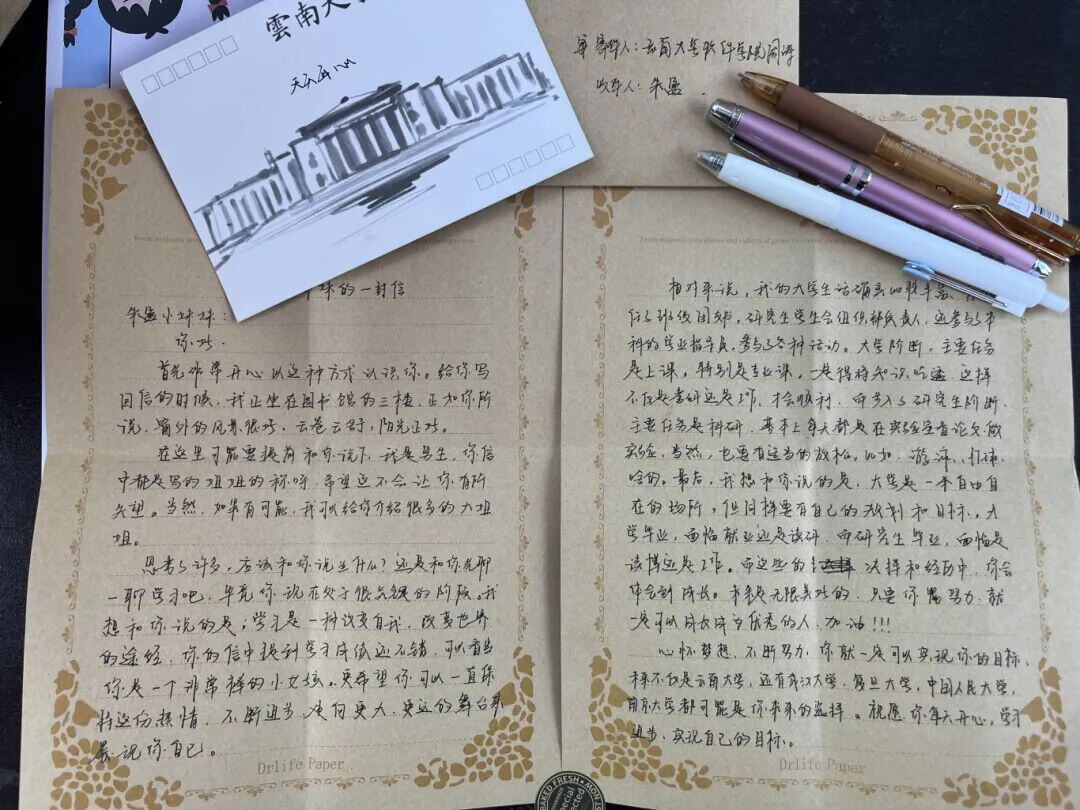 雲南大
寄件人：云南大学软件学院同学
收件人：朱盈
的一封信
朱盈小妹妹：
你好，
首先非常开心以这种方式认识你。给你写
回信的时候，我正坐在图书馆的三楼，正如你所
说，窗外的风景很好，云卷云舒，阳光正好。
在这里可能要提前和你说下，我是男生，你信
中都是写的姐姐的称呼，希望这不会让你有所
失望。当然，如果有可能，我可以给你介绍很多的大姐
姐。
思考了许多，应该和你说些什么？还是和你先聊
一聊学习吧，毕竟你说在处于很关键的阶段。我
想和你说的是；学习是一种改变自我，改变世界
的途经，你的信中提到学习成绩还不错，可以看出
你是一个非常棒的小女孩。更希望你可以一直保
持这份热情，不断进步，走向更大，更远的舞台来
展现你自己。
Drlife Paper
相对来说，我的大学生活确实比较丰富，
任了班级团支书，研究生学生会组织部负责人，还参与了本
科的学业指导员，参与了各种活动。大学阶段，主要任务
是上课，特别是专业课，一定得将知识吃透，这样
不仅是考研还是工作，才会顺利，而步入了研究生阶段，
主要任务是科研，基本上每天都是在实验室看论文做
实验，当然，也要有适当的放松。比如，游泳，打球
啥的。最后，我想和你说的是，大学是一个自由自
在的场所，但同样要有自己的规划和目标。大
学毕业，面临就业还是读研，而研究生毕业，面临是
读博还是工作。而这些的决择和经历中，你会
体会到成长。未来是无限美好的，只要你努力，就
一定可以成长成为优秀的人，加油!!!
心怀梦想，不断努力，你就一定可以实现你的目标，
未来不仅是云南大学，还有武汉大学，复旦大学，中国人民大学，
南京大学都可能是你未来的选择。祝愿你每天开心，学习
进步，实现自己的目标。
Drlife Paper